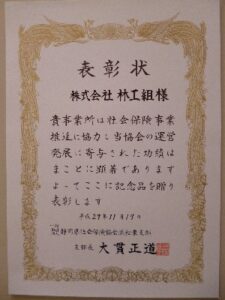 表彰状
株式会社 林工組様
貴事業所は社会保険事業
推進に協力し当協会の運営
発展に寄与された功績は
まことに顕著であります
よってここに記念品を贈り
表彰します
平成29年11月17日
静岡県社会保険協会浜松東支部
支部長 大貫正道